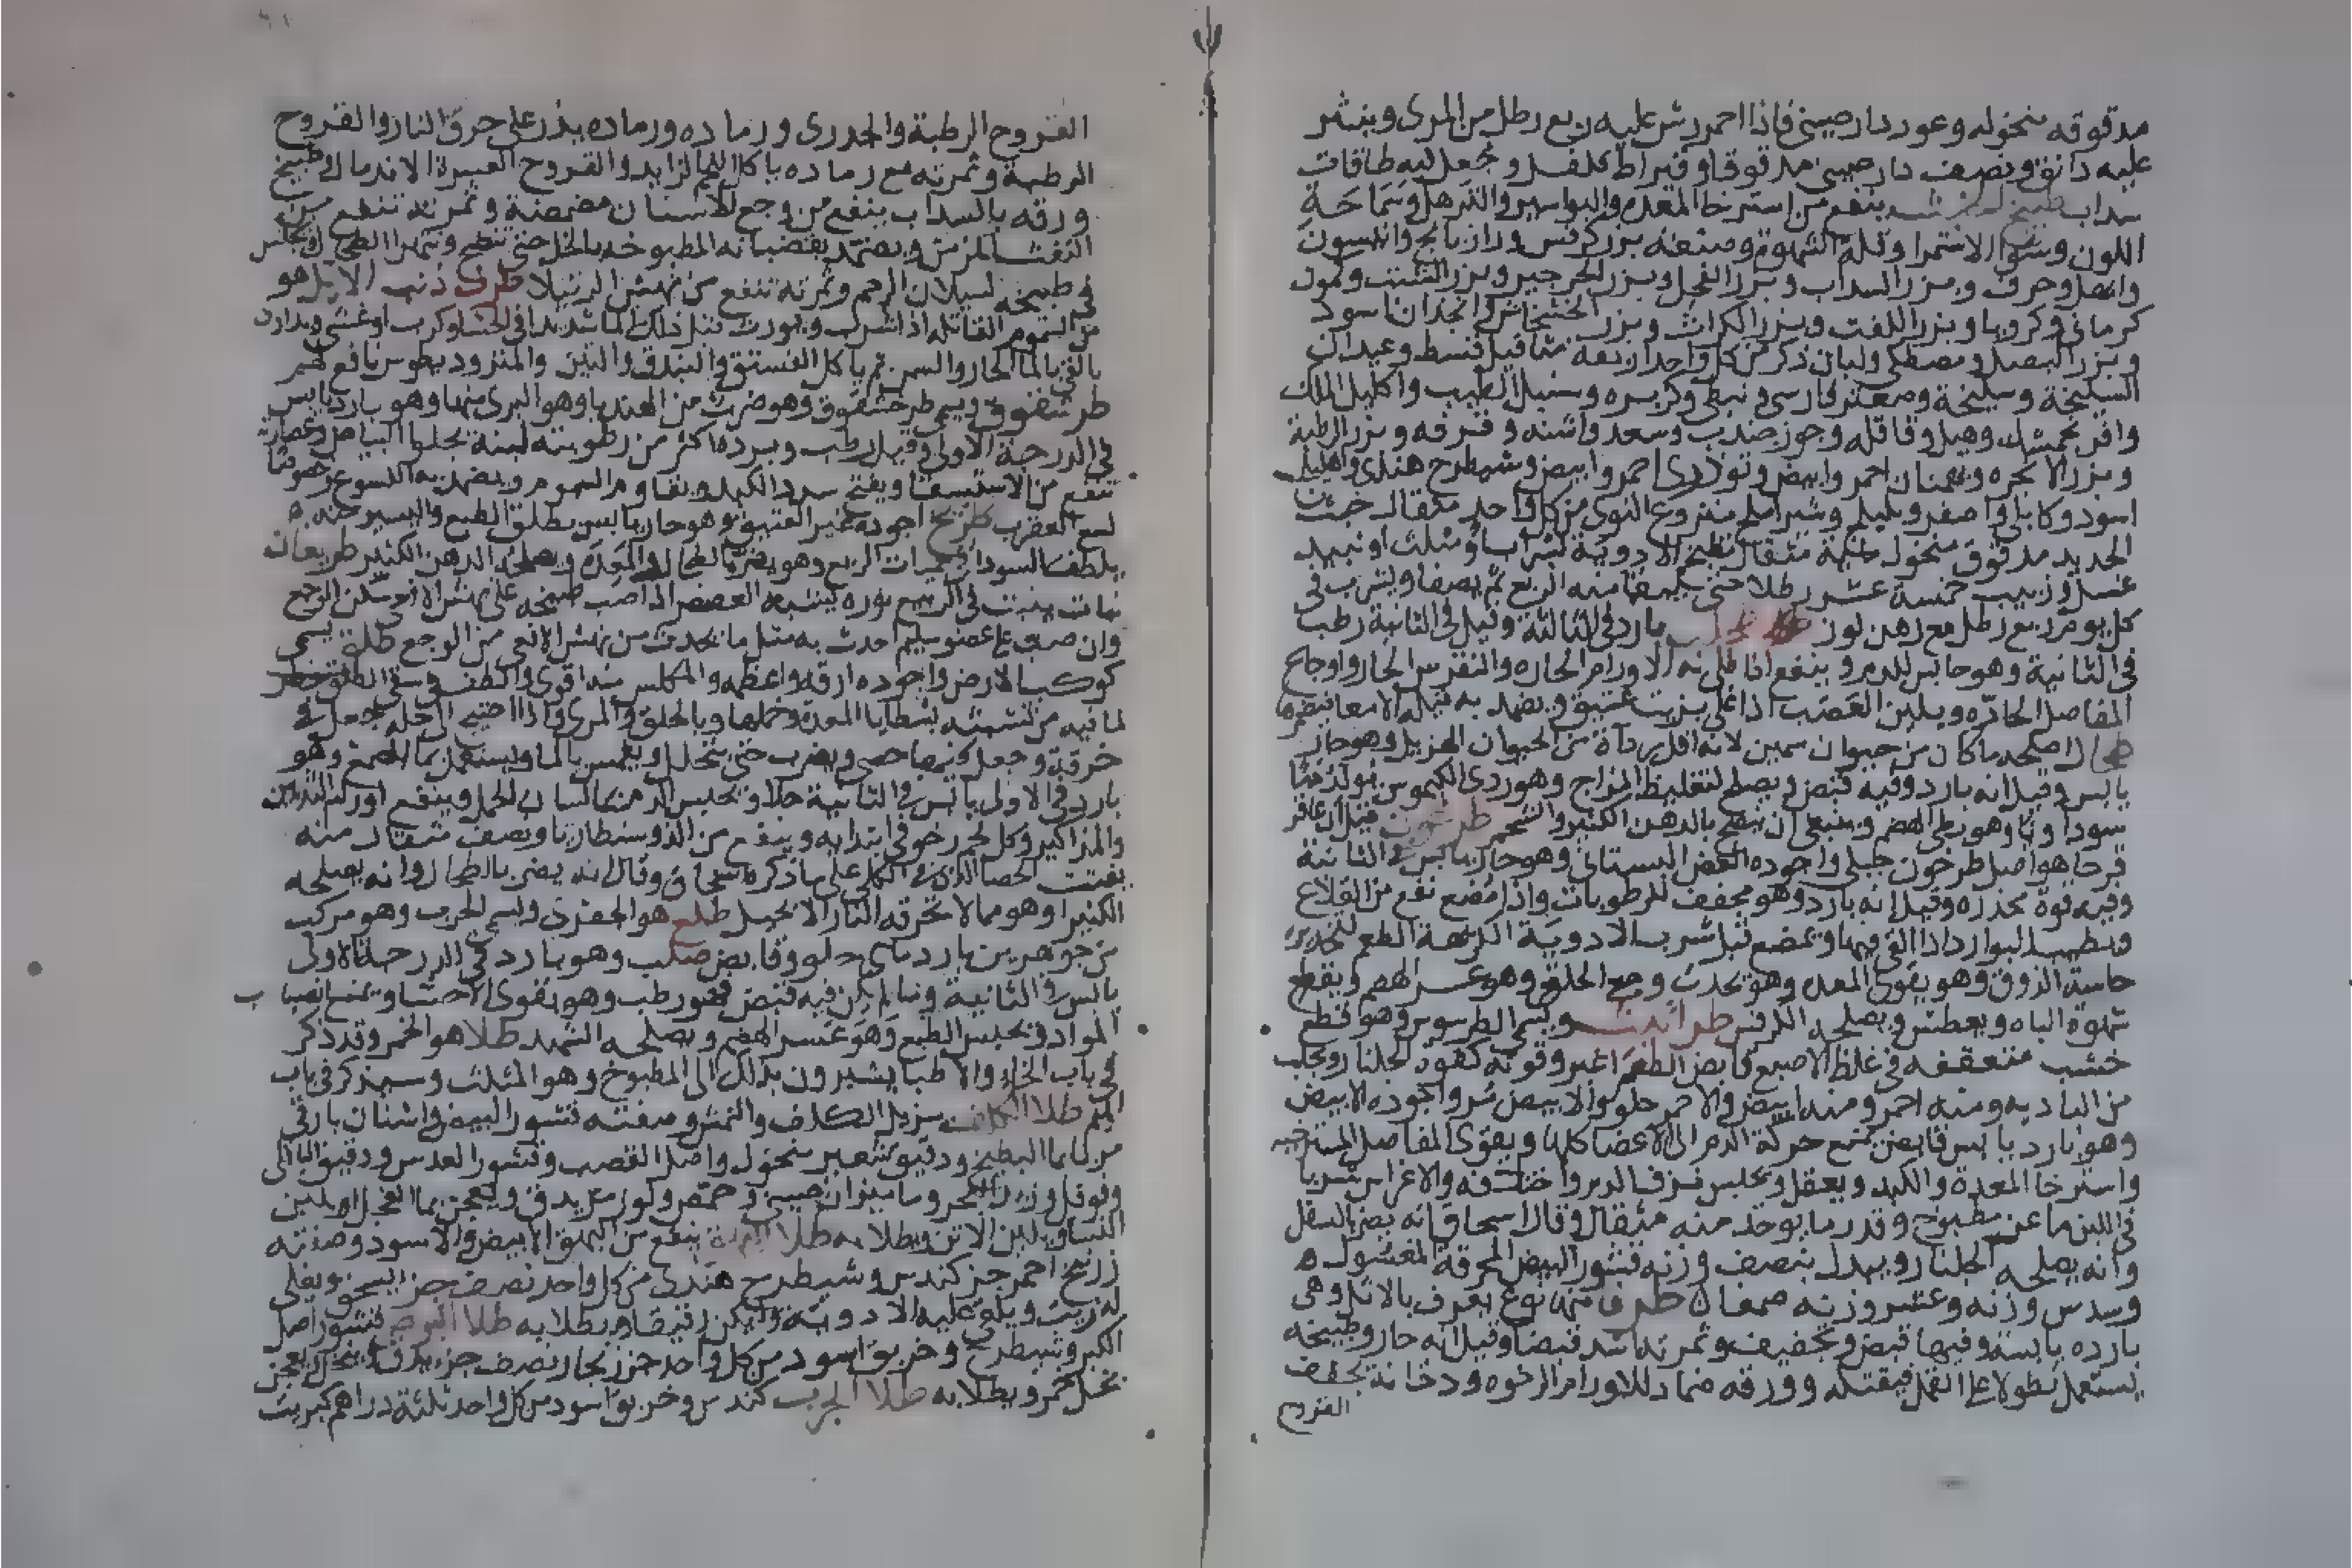 مدقوقه منخوله وعود دارصيني فاذا احمر رش عليه ربع رطل من المرى وينثر
عليه دانق ونصف دارصيني مدقوقا وقيراط فلفل وجعل فيه طاقات
سداب طبيخ ينفع من استرخا المعده والبواسير والترهل وسماجة
اللون وسوا الاستمرا وقلة الشهوة وصنعته بزر كرفس ورازيانج وانيسون
وبزر السداب وبزر الفجل وبزر الجرجير وبزر الشبت وكمون
كرمانى وكرويا وبزر اللفت وبزر الكراث وبزر الخشخاش انجدان اسود
وبزر البصل ومصطكى ولبان ذكر من كل واحد اربعه مثاقيل قسط وعيدان
السليخة وسليخة وصعتر فارسى ونبطى وكزبره وسنبل الطيب واكليل الملك
وافرنجمشك وهيل وقاقله وجوز جندب وسعد واشنه وقرفه وبزر الرطبة
وبزر الانجره وبهمنان احمر وابيض وتودرى احمر وابيض وشيطرج هندى واهليلج
اسود وكابلى واصفر وبليلج وشير املج منزوع النوى من كل واحد مثقال خبث
الحديد مدقوق منخول مثقال تطبخ الادوية بشراب او مثلث او نبيذ
عسل وزبيب خمسة عشر رطلا حتى يبقا منه الربع ثم يصفا ويشرب فى
كل يوم ربع رطل مع دهن لوز بارد فى الثالثة وقيل فى الثانية رطب
فى الثانية وهو حابس للدم وينفع اذا طلى به الاورام الحاره والنقرس الحار واوجاع
المفاصل الحادّه ويلين العصب اذا غلى بزيت عتيق ويضمد به قيلة الامعا
طحال اصلحه ما كان من حيوان سمين لانه اقل رداة من الحيوان الهزيل وهو حار
يابس وقيل انه بارد وفيه قبض ويصلح لتغليظ المزاج وهو ردى الكيموس يولد دما
سوداويا وهو بطى الهضم وينبغى ان يطبخ بالدهن الكثير والشحم طرخون قيل ان عاقر
قرحا هو اصل طرخون جبلى واجوده الغض البستانى وهو حار يابس فى الثانية
وفيه قوة مخدره وقيل انه بارد وهو مجفف للرطوبات واذا مضغ نفع من القلاع
ويطيب البوارد اذا القى فيها ويمضغ قبل شرب الادوية الكريهة الطعم لتخديره
حاسة الذوق وهو يقوى المعده وهو يحدث وجع الحلق وهو عسر الهضم ويقطع
شهوة الباه ويعطش ويصلحه الكرفس طراثيث ويسمى الطرسوس وهو قطع
خشب متعقفه فى غلظ الاصبع قابض الطعم اغبر وقوته كقوة الجلنار ويجلب
من الباديه ومنه احمر ومنه ابيض والاحمر حلو والابيض مر واجوده الابيض
وهو بارد يابس قابض يمنع حركة الدم الى الاعضا كلها ويقوى المفاصل المسترخيه
واسترخا المعدة والكبد ويعقل ويحبس نزف الدم والاغراس شربا
فى اللبن ماعز مطبوخ وقدر ما يوخذ منه مثقال وقال اسحاق انه يضر بالسفل
وانه يصلحه الجلنار وبدله بنصف وزنه قشور البيض المحرقة المغسوله
وسدس وزنه وعشر وزنه صمغا طرفا منها نوع يعرف بالاثل وهى
بارده يابسة وفيها قبض وتجفيف وثمرتها اشد قبضا وقيل انه حار وطبيخه
يستعمل نطولا على القمل فيقتله وورقه ضمادا للاورام الرخوه ودخانه يجفف
القروح
القروح الرطبة والجدرى ورماده يذر على حرق النار والقروح
الرطبة وثمرته مع رماده ياكل اللحم الزايد والقروح العسرة الاندمال وطبيخ
ورقه بالسداب ينفع من وجع الاسنان مضمضة وثمرته تنفع من
النفث المزمن ويضمد بقضبانه المطبوخه بالخل حتى تنطبخ وتتهرا الطحال ويجلس
فى طبيخه لسيلان الرحم وثمرته تنفع من نهش الرتيلا طرف ذنب الايل هو
من السموم القاتله اذا شرب ويورث قبل ذلك الما شديدا فى الحشا وكرب او غشى ويداوى
بالقى بالما الحار والسمن ثم ياكل الفستق والبندق والتين والمثروديطوس نافع لهم
طرشقوق ويسمى طرخشقوق وهو ضرب من الهندبا وهو البرى منها وهو بارد يابس
فى الدرجة الاولى وقيل رطب وبرده اكثر من رطوبته لبنه يجلوا البياض وعصارته
تنفع من الاستسقا ويفتح سدد الكبد ويقاوم السموم ويضمد به اللسوع خصوصا
لسع العقرب طريخ اجوده غير العتيق وهو حار يابس يطلق الطبع واليسير منه
يلطف السودا فى حميات الربع وهو يضر بالطحال والمعدة ويصلحه الدهن الكثير طريفان
نبات ينبت فى الربيع نوره يشبه العصفر اذا صب طبيخه على نهش الافعى سكن الوجع
وان صب على عضو سليم احدث به مثل ما يحدث من نهش الافعى من الوجع طلق يسمى
كوكب الارض واجوده ارقه واعظمه والمكلس منه اقوى والطف وفى سقى الطلق خطر
لما فيه من تشبثه بشظايا المعدة وخملها وبالحلق والمرى واذا احتيج الى حله جعل فى
خرقة وجعل فيها حصى ويضرب حتى يتحلل ويغمس بالما ويستعمل بما الصمغ وهو
بارد فى الاولى يابس فى الثانية ويحبس الدم بما لسان الحمل وينفع اورام الثديين
والمذاكير وكل لحم رخو فى ابتدايه وينفع من الذوسنطاريا ونصف مثقال منه
يفتت الحصا الذى فى الكلى على ما ذكره اسحاق وقال انه يضر بالطحال وانه يصلحه
الكثيرا وهو مما لا تحرقه النار الا بحيل طلع هو الجفرى وهو مركب
من جوهرين بارد مائى حلو وقابض صلب وهو بارد فى الدرجة الاولى
يابس فى الثانية وما لم يكن فيه قبض فهو رطب وهو يقوى الاحشا ويمنع انصباب
المواد ويحبس الطبع وهو عسر الهضم ويصلحه الشهد طلا هو الخمر وقد ذكر
فى باب الخا والاطبا يشيرون بذلك الى المطبوخ وهو المثلث وسيذكر فى باب
الميم طلا الكلف يزيل الكلف والنمش وصفته قشور البيض واشنان بارقى
البطيخ ودقيق شعير منخول واصل القصب وقشور العدس ودقيق الباقلى
وفوفل وزبد البحر وماميران صينى وحمص ولوز مر يدق ويعجن بما الفجل او بلبن
النسا وبلبن الاتن ويطلا به طلا البهق ينفع من البهق الابيض والاسود وصفته
زرنيخ احمر جز كندس وشيطرج هندى من كل واحد نصف جز يسحق ويغلى
له زيت ويلقى عليه الادوية وليكن رقيقا ويطلا به طلا البرص قشور اصل
الكبر وشيطرج وخربق اسود من كل واحد جز زنجار نصف جز يدق وينخل ويعجن
بخل خمر ويطلا به طلا الجرب كندس وخربق اسود من كل واحد ثلثة دراهم كبريت